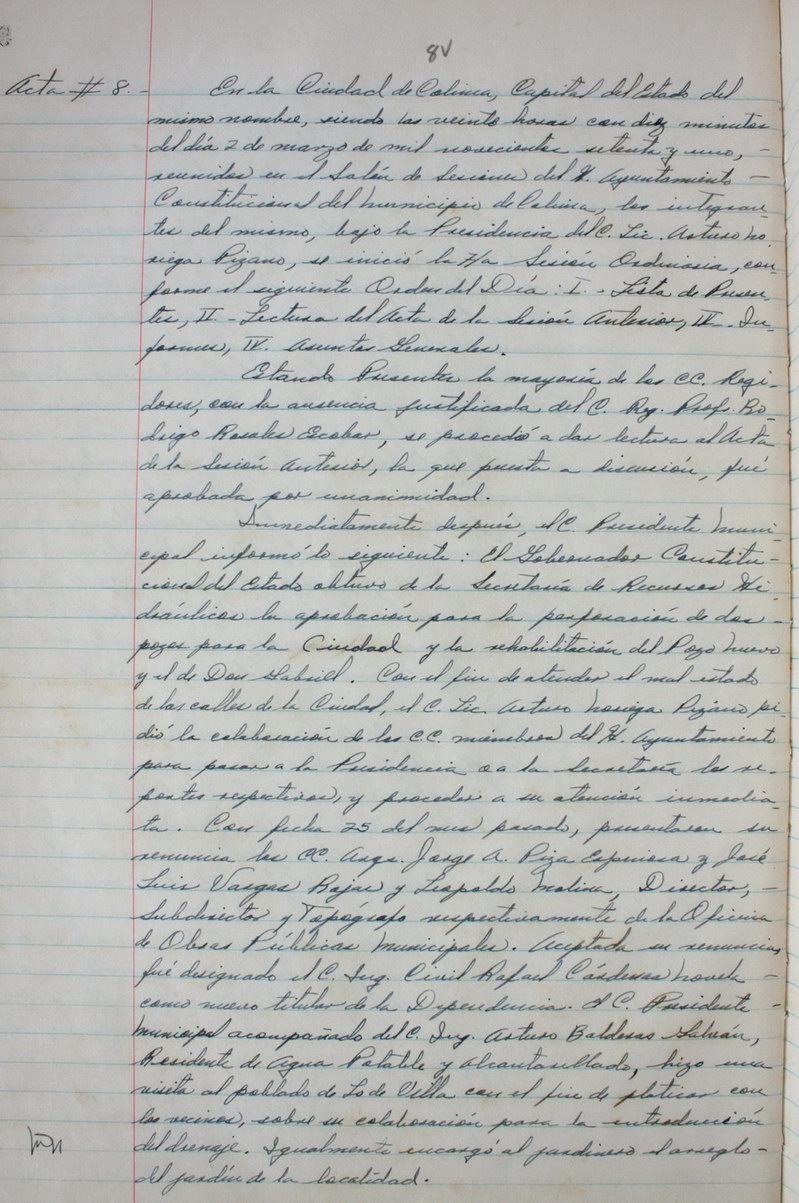 8v
Acta # 8.- En la Ciudad de Colima, Capital del Estado del
mismo nombre, siendo las veinte horas con diez minutos
del día 2 de marzo de mil novecientos setenta y uno, -
reunidos en el Salón de Sesiones del H. Ayuntamiento -
Constitucional del Municipio de Colima, los integran-
tes del mismo, bajo la Presidencia del C. Lic. Arturo No-
riega Pizano, se inició la 7/a Sesión Ordinaria, con-
forme el siguiente Orden del Día: I.- Lista de Presen-
tes, II.- Lectura del Acta de la Sesión Anterior, IV.- In-
formes, IV. Asuntos Generales.
Estando Presentes la mayoría de los CC. Regi-
dores, con la ausencia justificada del C. Reg. Profr. Ro-
drigo Rosales Escobar, se procedió a dar lectura al Acta
de la Sesión Anterior, la que puesta a discusión, fué
aprobada por unanimidad.
Inmediatamente después, el C. Presidente Muni-
cipal informó lo siguiente: El Gobernador Constitu-
cional del Estado obtuvo de la Secretaría de Recursos Hi-
dráulicos la aprobación para la perforación de dos -
pozos para la Ciudad y la rehabilitación del Pozo Nuevo
y el de Don Gabriel. Con el fin de atender el mal estado
de las calles de la Ciudad, el C. Lic. Arturo Noriega Pizano pi-
dió la colaboración de los CC. miembros del H. Ayuntamiento
para pasar a la Presidencia o a la Secretaría los re-
portes respectivos, y proceder a su atención inmedia-
ta. Con fecha 25 del mes pasado, presentaron su
renuncia los CC. Arqs. Jorge A. Piza Espinosa y José
Luis Vargas Rojas y Leopoldo Molina, Director, -
Subdirector y Topógrafo respectivamente de la Oficina
de Obras Públicas Municipales. Aceptada su renuncia,
fué designado el C. Ing. Civil Rafael Cárdenas Novela -
como nuevo titular de la Dependencia. El C. Presidente -
Municipal acompañado del C. Ing. Arturo Balderas Galván,
Residente de Agua Potable y Alcantarillado, hizo una
visita al poblado de Lo de Villa con el fin de platicar con
los vecinos, sobre su colaboración para la introducción
del drenaje. Igualmente encargó al jardinero el arreglo -
del jardín de la localidad.